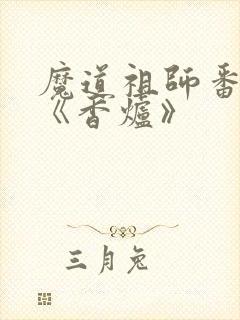 魔道祖師番
《香爐》
三月兔